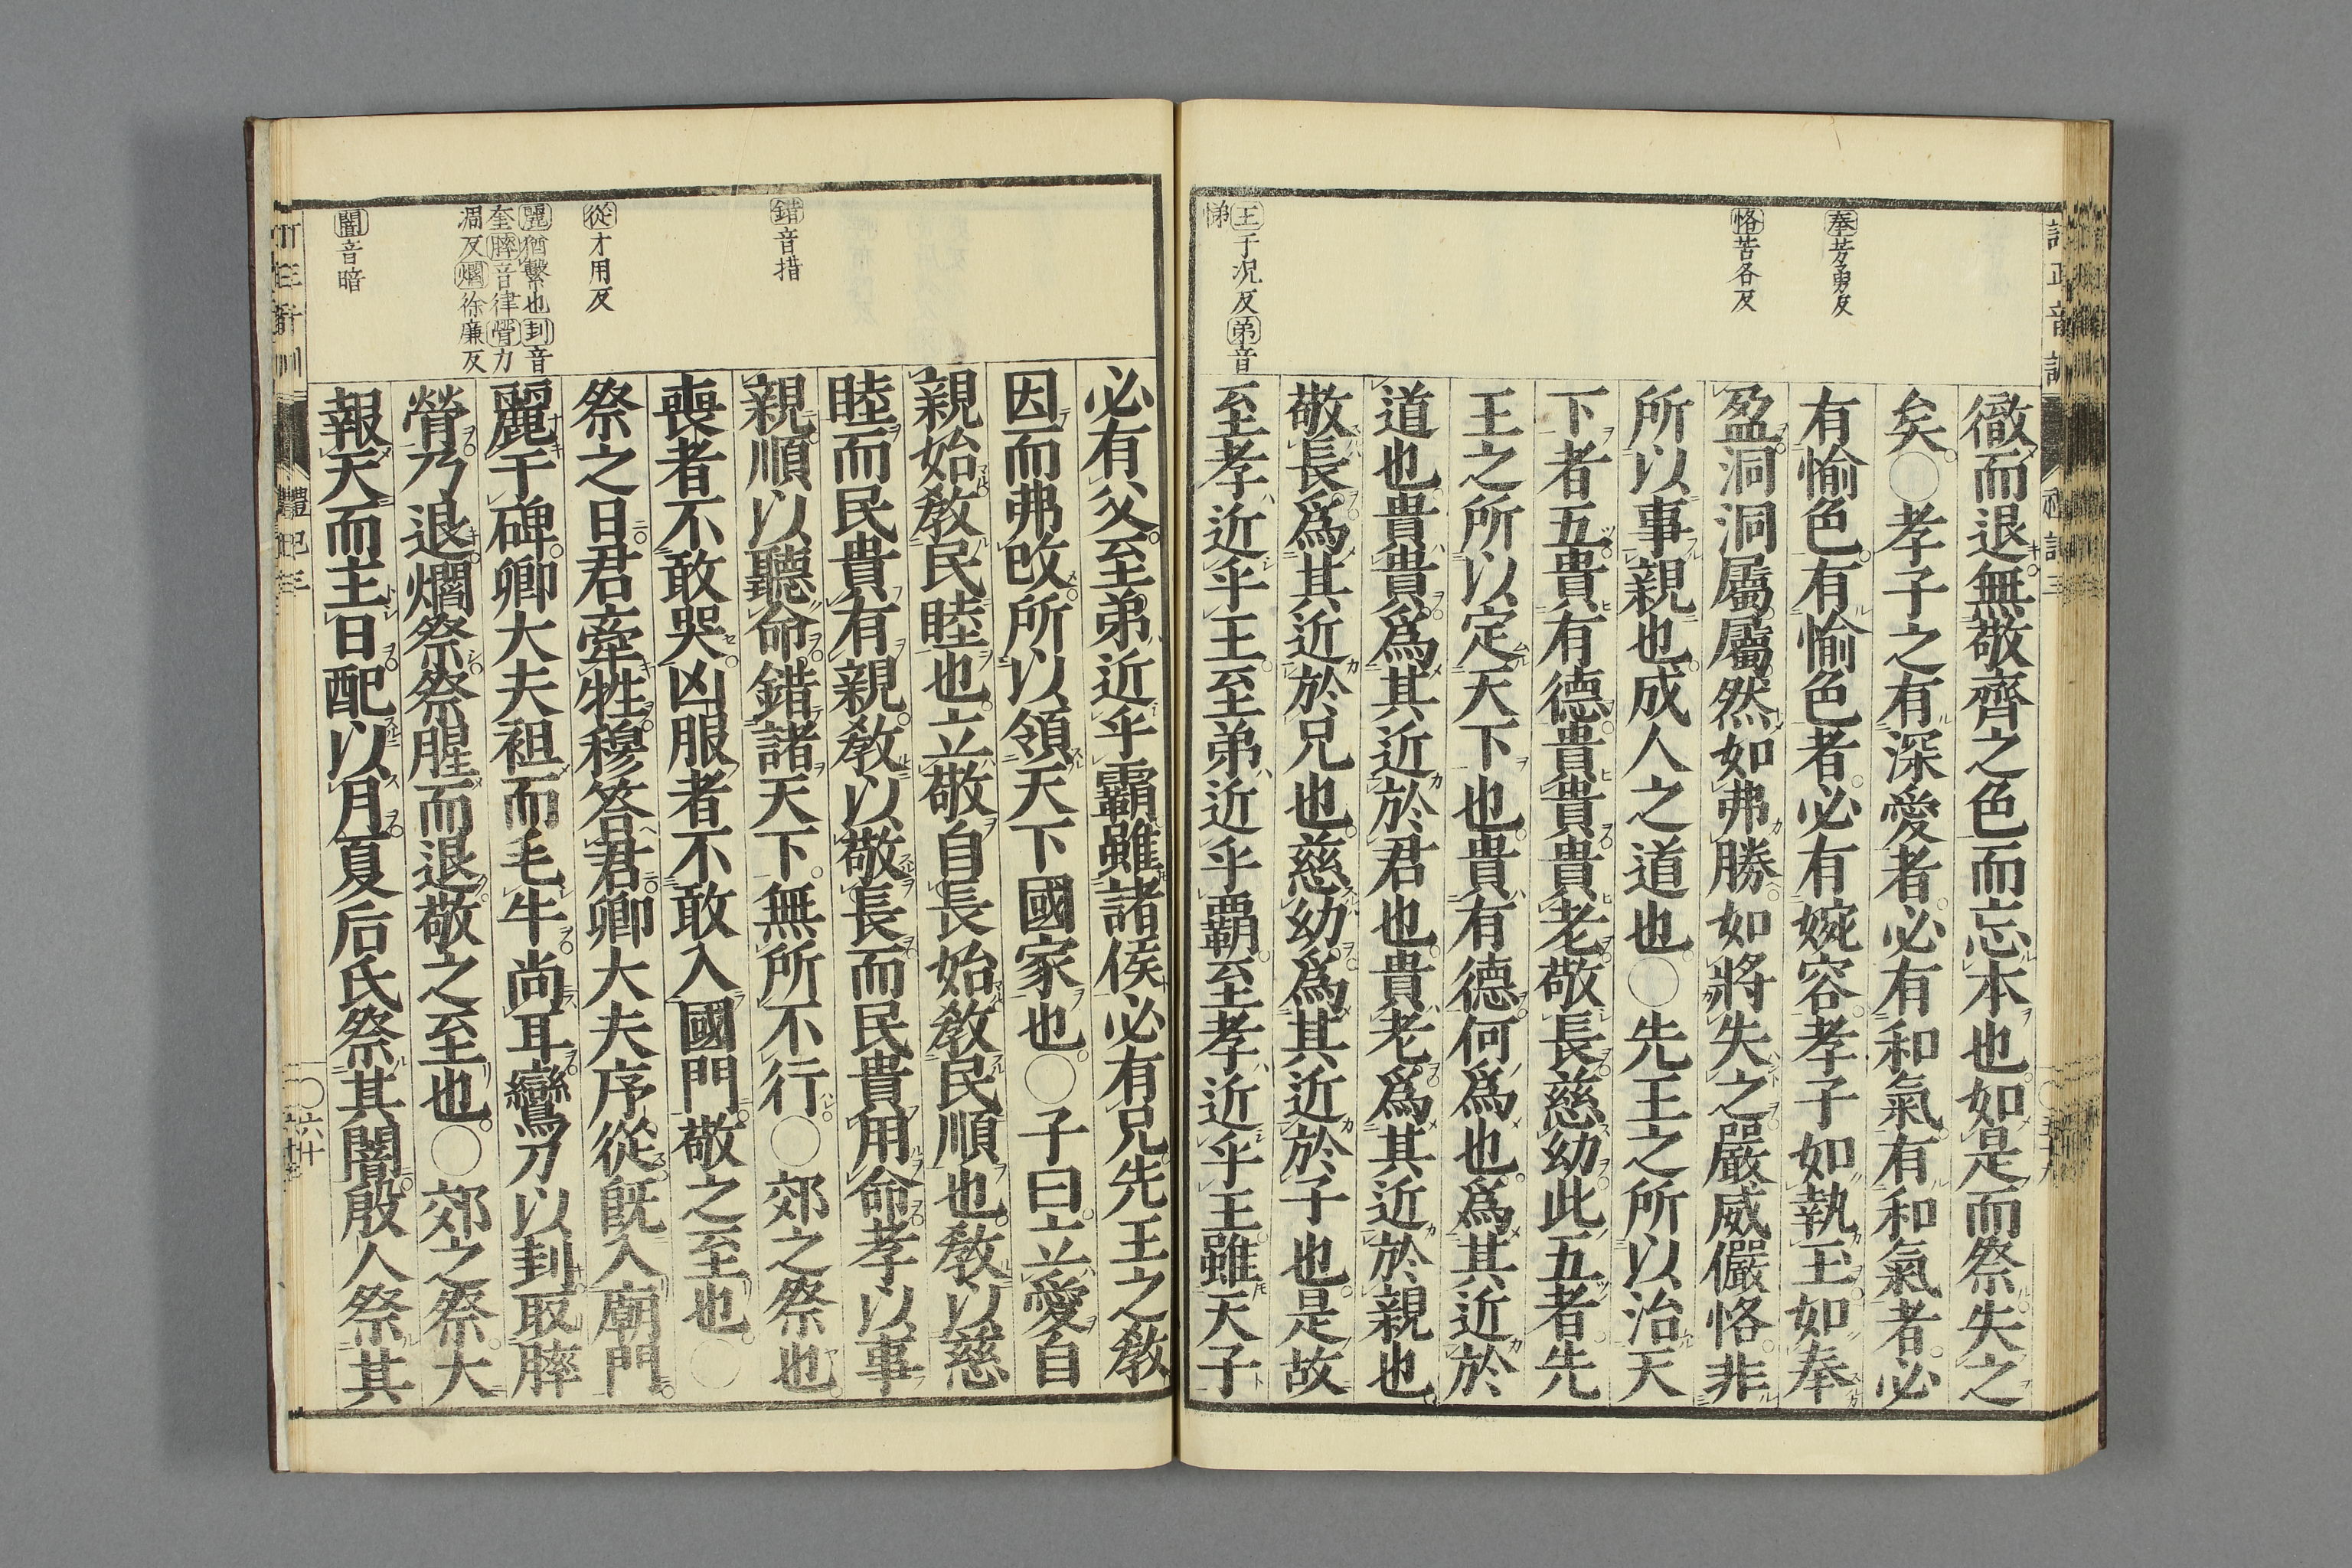 奉芳勇反
恪苦各反
王于況反弟音
悌
徹而退無敬齊之色而忘本也如是而祭失之
矣○孝子之有深愛者必有和氣有和氣者必
有愉色有愉色者必有婉容孝子如執玉如奉
盈洞洞屬屬然如弗勝如將失之嚴威儼恪非
所以事親也成人之道也○先王之所以治天
下者五貴有德貴貴貴老敬長慈幼此五者先
王之所以定天下也貴有德何爲也爲其近於
道也貴貴爲其近於君也貴老爲其近於親也
敬長爲其近於兄也慈幼爲其近於子也是故
至孝近乎王至弟近乎覇至孝近乎王雖天子
錯音措
從才用反
麗猶繫也刲音
奎膟音律膋力
凋反爓徐廉反
闇音暗
必有父至弟近乎霸雖諸侯必有兄先王之敎
因而弗攺所以領天下國家也○子曰立愛自
親始敎民睦也立敬自長始敎民順也敎以慈
睦而民貴有親敎以敬長而民貴用命孝以事
親順以聽命錯諸天下無所不行○郊之祭也
喪者不敢哭凶服者不敢入國門敬之至也○
祭之日君牽牲穆答君卿大夫序從既入廟門
麗于碑卿大夫袒而毛牛尚耳鸞刀以刲取膟
膋乃退爓祭祭腥而退敬之至也○郊之祭大
報天而主日配以月夏后氏祭其闇殷人祭其
禮記三
六十